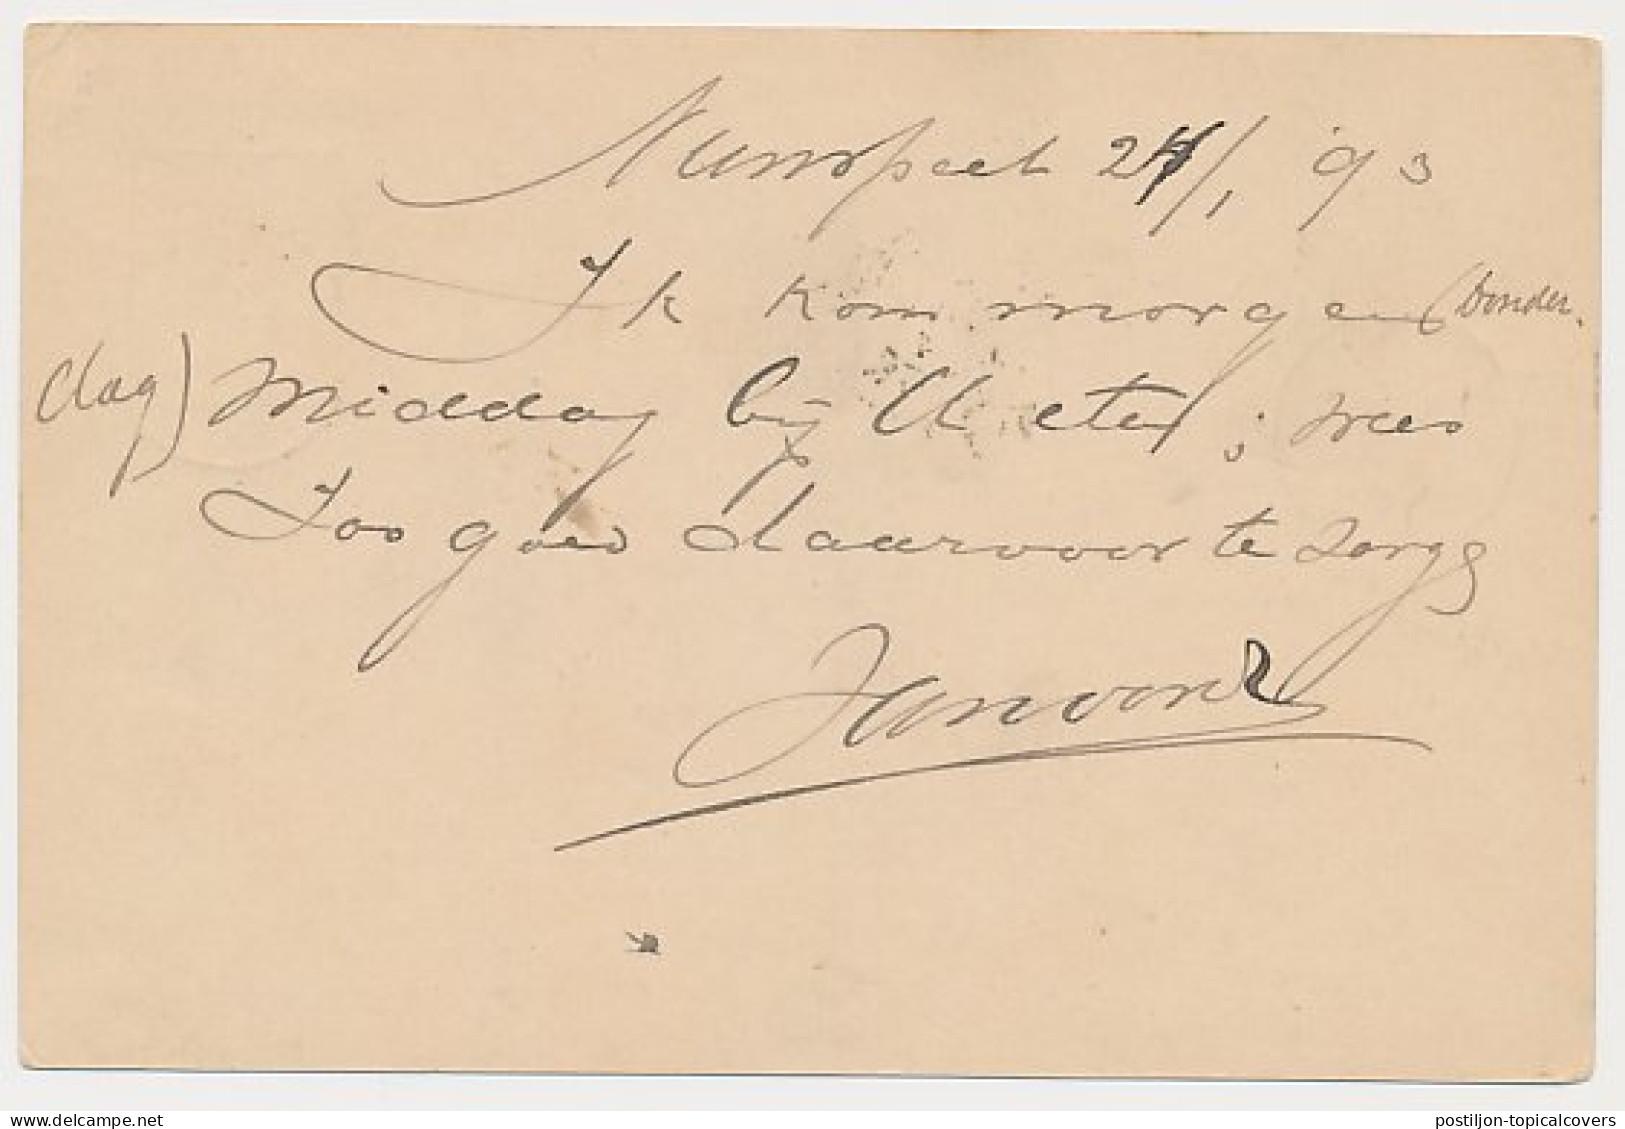 Nunspeet 24/1 93
Ik kom morgen (Donder.
dag) Middag bij U eten; wees
Zoo goed daarvoor te zorg
delcampe.net
postiljon-topicalcovers